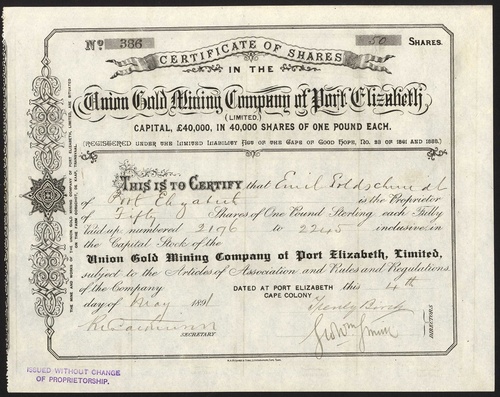 No. 386 50 SHARES.
CERTIFICATE OF SHARES
IN THE
Union Gold Mining Company of Port Elizabeth
(LIMITED.)
CAPITAL, £40,000, IN 40,000 SHARES OF ONE POUND EACH.
(REGISTERED UNDER THE LIMITED LIABILITY ACTS OF THE CAPE OF GOOD HOPE, No. 23 OF 1861 AND 1888.)
THIS IS TO CERTIFY that Emil Goldschmidt
of Port Elizabeth is the Proprietor
of Fifty Shares of One Pound Sterling each Fully
Paid up numbered 2196 to 2245 inclusive, in
the Capital Stock of the
Union Gold Mining Company of Port Elizabeth, Limited,
subject to the Articles of Association and Rules and Regulations
of the Company DATED AT PORT ELIZABETH this 4th
CAPE COLONY
day of May 1891
SECRETARY
DIRECTORS
ISSUED WITHOUT CHANGE
OF PROPRIETORSHIP.